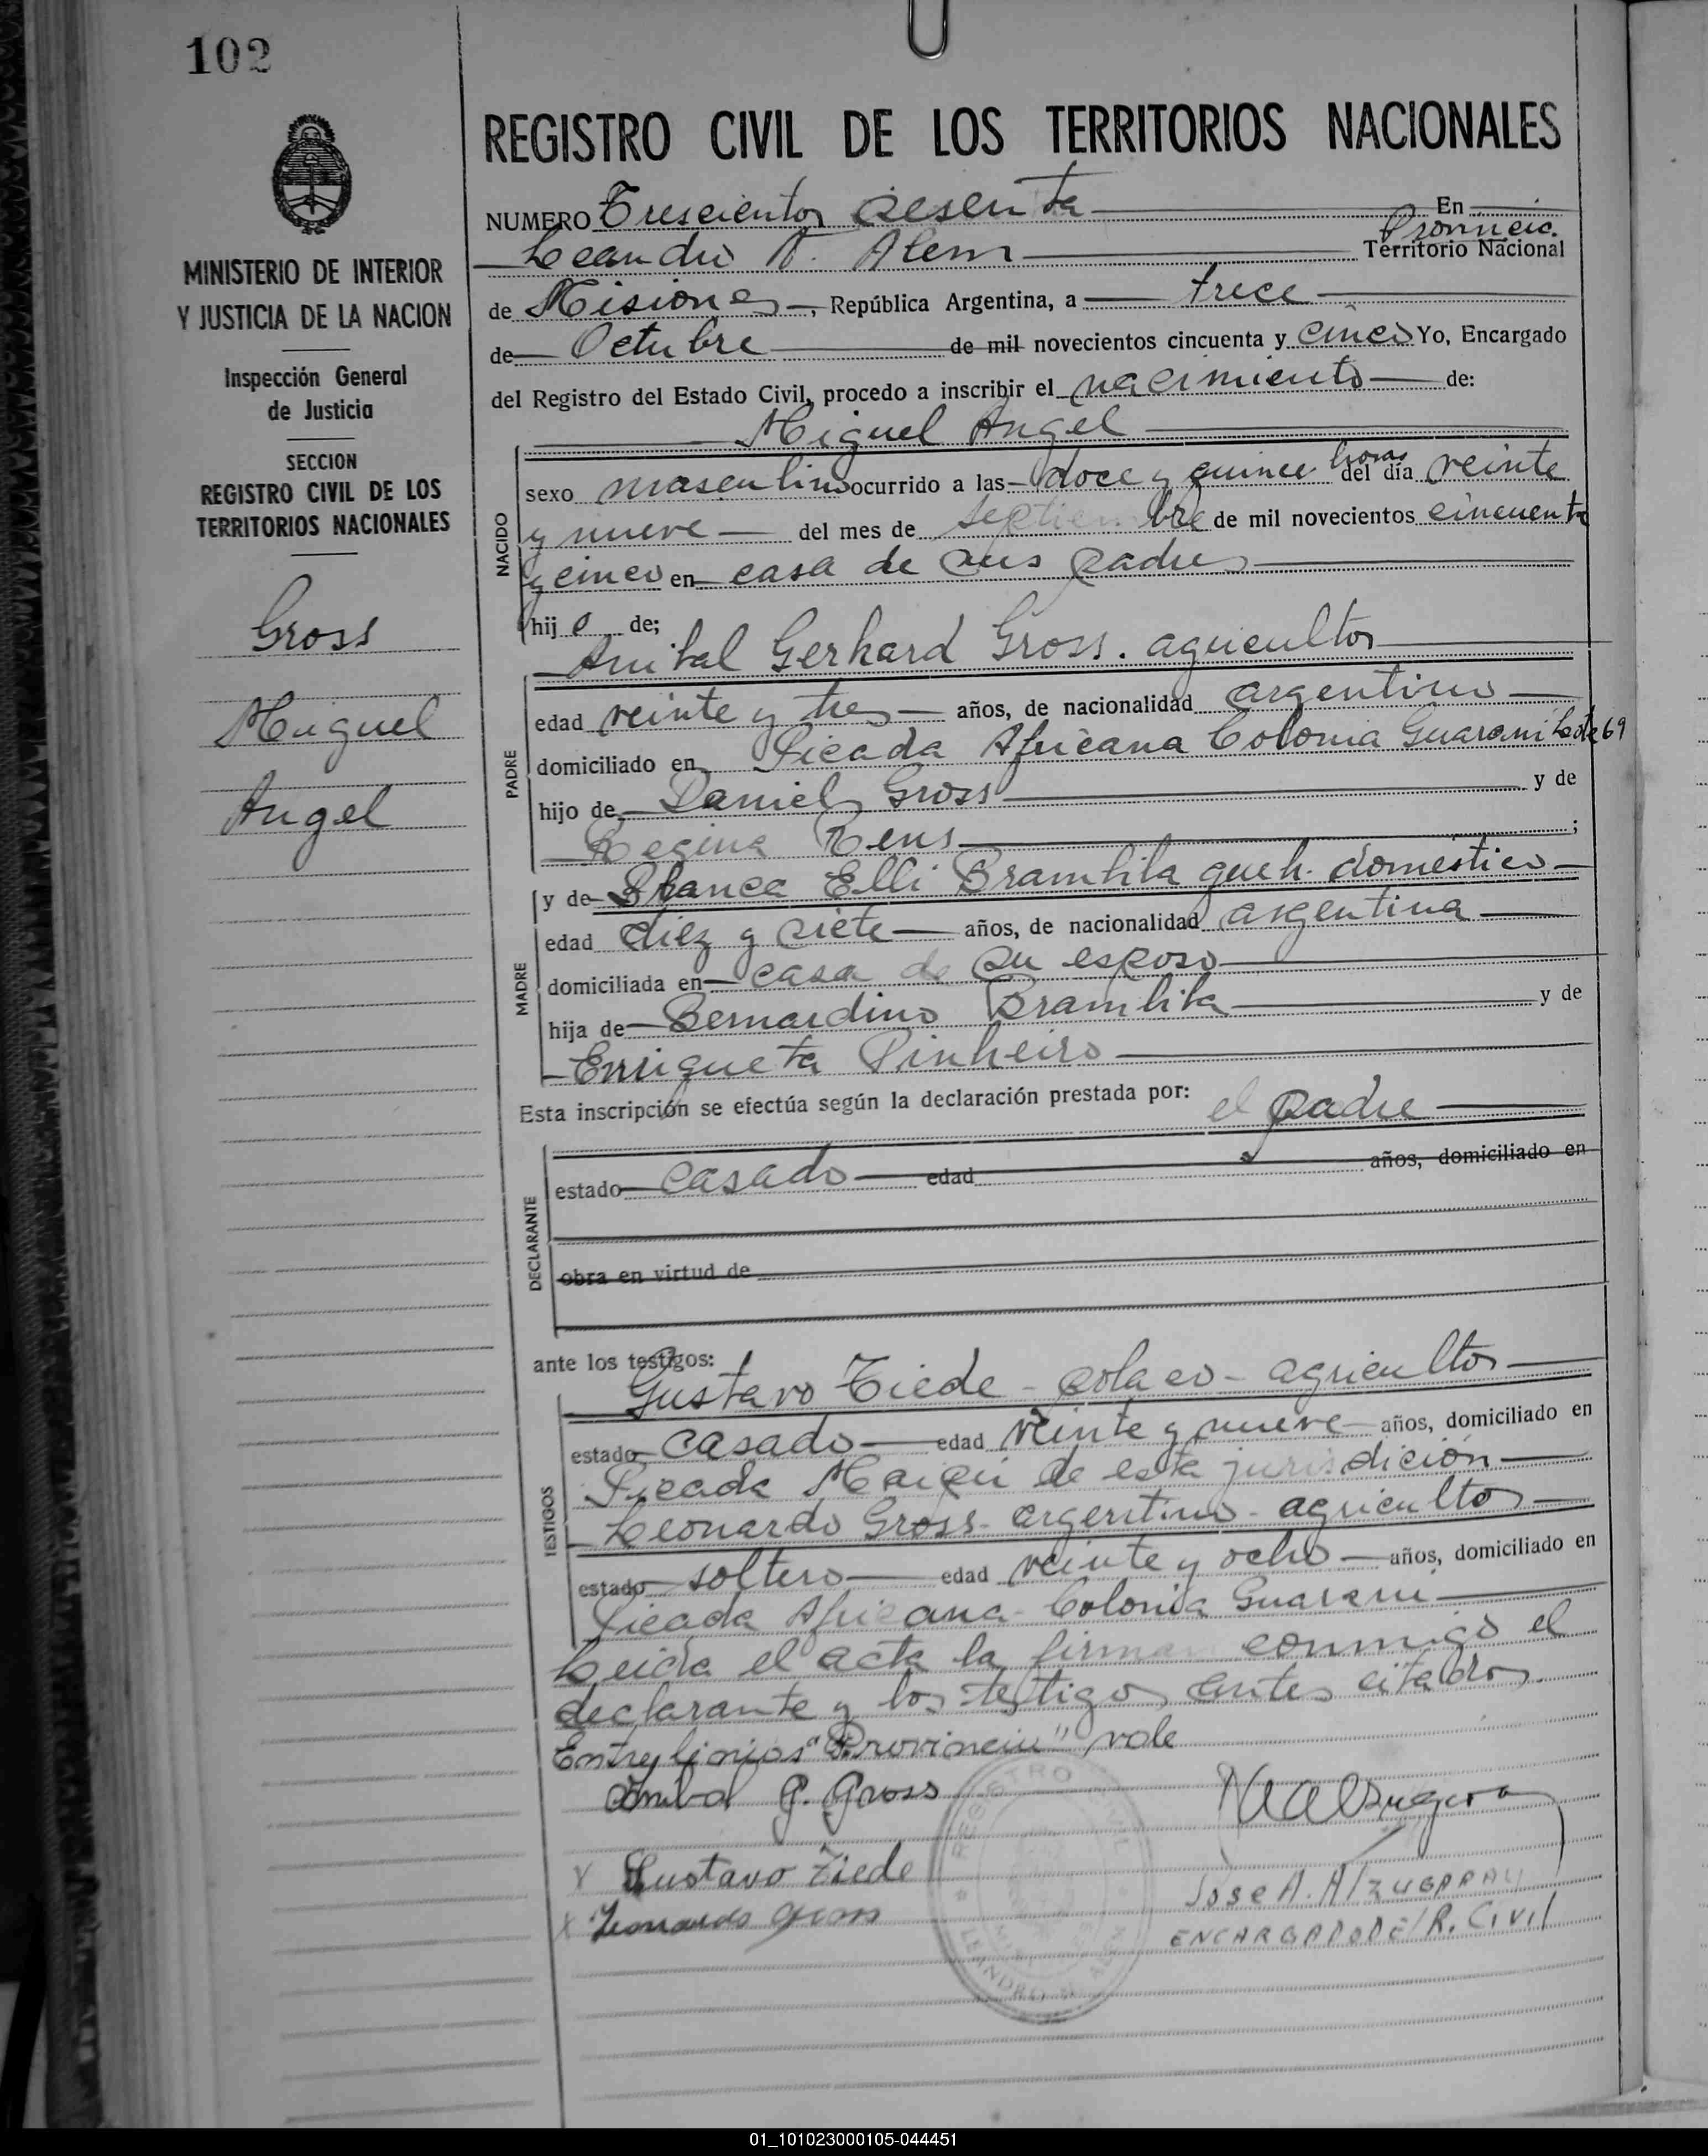 102
REGISTRO CIVIL DE LOS TERRITORIOS NACIONALES
MINISTERIO DE INTERIOR
Y JUSTICIA DE LA NACION
Inspección General
de Justicia
SECCION
REGISTRO CIVIL DE LOS
TERRITORIOS NACIONALES
Gross
Miguel
Angel
NUMERO Trescientos sesenta En
Provincia
Leandro N. Alem Territorio Nacional
de Misiones, República Argentina, a trece
de Octubre de mil novecientos cincuenta y cinco Yo, Encargado
del Registro del Estado Civil, procedo a inscribir el nacimiento de:
Miguel Angel
NACIDO
sexo masculino ocurrido a las doce y quince horas del día veinte
y nueve del mes de septiembre de mil novecientos cincuenta
y cinco en casa de sus padres
hij o de;
Anibal Gerhard Gross. agricultor
PADRE
edad veinte y tres años, de nacionalidad argentino
domiciliado en Picada Africana Colonia Guarani Lote 69
hijo de Daniel Gross y de
Regina Rens ;
MADRE
y de Blanca Elli Brambila queh. domestico
edad diez y siete años, de nacionalidad argentina
domiciliada en casa de su esposo
hija de Bernardino Brambila y de
Enriqueta Pinheiro
Esta inscripción se efectúa según la declaración prestada por: el padre
DECLARANTE
estado casado edad años, domiciliado en
obra en virtud de
ante los testigos:
TESTIGOS
Gustavo Tiede - polaco - agricultor
estado casado edad veinte y nueve años, domiciliado en
Picada Maipú de esta jurisdición
Leonardo Gross - argentino - agricultor
estado soltero edad veinte y ocho años, domiciliado en
Picada Africana - Colonia Guarani
Leida el acta la firman conmigo el
declarante y los testigos antes citados.
Entrelinias "Provincia" vale
Anibal G. Gross
Gustavo Tiede
Leonardo Gross
Jose A. AlzugaRAY
ENCARGADO DE/R. Civil
REGISTRO CIVIL
LEANDRO N. ALEM
01_101023000105-044451